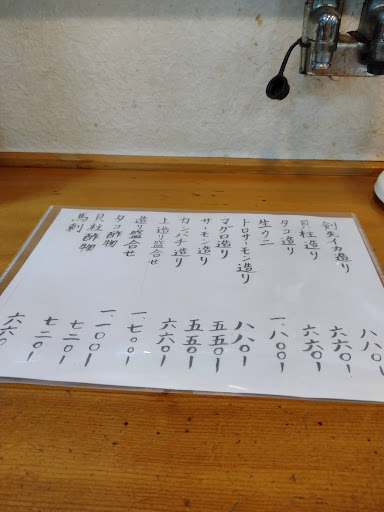 剣先イカ造り 八八〇ー
貝柱造り 六六〇ー
タコ造り 六六〇ー
生ウニ 一.八〇〇ー
トロサーモン造り 八八〇ー
マグロ造り 五五〇ー
サーモン造り 五五〇ー
カンパチ造り 六六〇ー
上造り盛合せ 一.七〇〇ー
造り盛合せ 一.一〇〇ー
タコ酢物 七二〇ー
貝柱酢物 七二〇ー
馬刺 六六〇